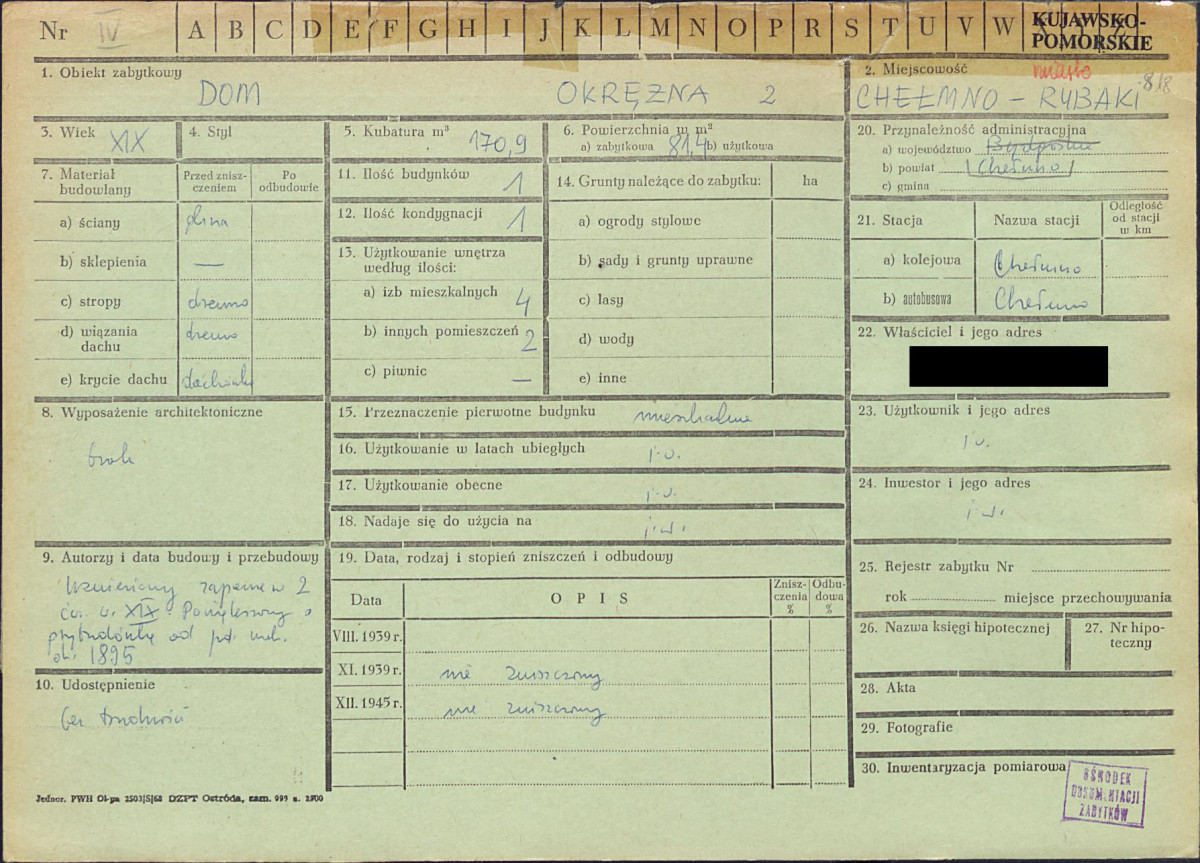 Nr IV A B C D E F G H I J K L M N O P R S T U V W
KUJAWSKO-
POMORSKIE
1. Obiekt zabytkowy
DOM OKRĘŻNA 2
2. Miejscowość miasto
CHEŁMNO – RYBAKI 818
3. Wiek XIX
4. Styl
5. Kubatura m³ 170,9
6. Powierzchnia w m²
a) zabytkowa 81,4 b) użytkowa
20. Przynależność administracyjna
a) województwo Bydgoskie
b) powiat (Chełmno)
c) gmina
7. Materiał
budowlany
Przed znisz-
czeniem
Po
odbudowie
a) ściany glina
b) sklepienia —
c) stropy drewno
d) wiązania
dachu drewno
e) krycie dachu dachówka
11. Ilość budynków 1
12. Ilość kondygnacji 1
13. Użytkowanie wnętrza
według ilości:
a) izb mieszkalnych 4
b) innych pomieszczeń 2
c) piwnic —
14. Grunty należące do zabytku: ha
a) ogrody stylowe
b) sady i grunty uprawne
c) lasy
d) wody
e) inne
21. Stacja Nazwa stacji
Odległość
od stacji
w km
a) kolejowa Chełmno
b) autobusowa Chełmno
22. Właściciel i jego adres
8. Wyposażenie architektoniczne
brak
15. Przeznaczenie pierwotne budynku mieszkalne
16. Użytkowanie w latach ubiegłych j.w.
17. Użytkowanie obecne j.w.
18. Nadaje się do użycia na j.w.
23. Użytkownik i jego adres
j.w.
24. Inwestor i jego adres
j.w.
9. Autorzy i data budowy i przebudowy
Wzniesiony zapewne w 2
ćw. w. XIX. Powiększony o
przybudówkę od pd. wsch.
ok. 1895
10. Udostępnienie
bez trudności
19. Data, rodzaj i stopień zniszczeń i odbudowy
Data OPIS
Znisz-
czenia
%
Odbu-
dowa
%
VIII. 1939 r.
XI. 1939 r. nie zniszczony
XII. 1945 r. nie zniszczony
25. Rejestr zabytku Nr
rok miejsce przechowywania
26. Nazwa księgi hipotecznej
27. Nr hipo-
teczny
28. Akta
29. Fotografie
30. Inwentaryzacja pomiarowa
OŚRODEK
DOKUMENTACJI
ZABYTKÓW
Jednor. PWH Ol-pa 2503|S|68 DZPT Ostróda, zam. 999 n. 2500